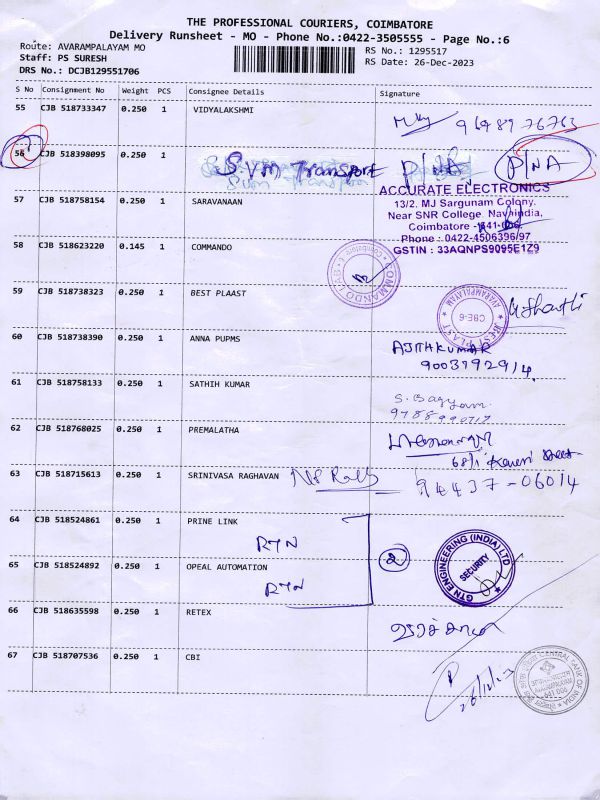 THE PROFESSIONAL COURIERS, COIMBATORE
Delivery Runsheet - MO - Phone No.:0422-3505555 - Page No.:6
Route: AVARAMPALAYAM MO
Staff: PS SURESH
DRS No.: DCJB129551706
RS No.: 1295517
RS Date: 26-Dec-2023
S No Consignment No Weight PCS Consignee Details Signature
55 CJB 518733347 0.250 1 VIDYALAKSHMI
56 CJB 518398095 0.250 1 SVM Transport P/NA P/NA
ACCURATE ELECTRONICS
13/2. MJ Sargunam Colony.
Near SNR College, Navhindia,
Coimbatore -641-006.
Phone : 0422-4506396/97
GSTIN : 33AQNPS9095E1Z9
57 CJB 518758154 0.250 1 SARAVANAAN
58 CJB 518623220 0.145 1 COMMANDO
59 CJB 518738323 0.250 1 BEST PLAAST
BEST PLAST
AVARAMPALAYAM
CBE-6
60 CJB 518738390 0.250 1 ANNA PUPMS
AJITHKUMAR
61 CJB 518758133 0.250 1 SATHIH KUMAR
62 CJB 518768025 0.250 1 PREMALATHA
63 CJB 518715613 0.250 1 SRINIVASA RAGHAVAN
94437-06014
64 CJB 518524861 0.250 1 PRINE LINK
RTN
2
GTN ENGINEERING (INDIA) LTD
SECURITY
65 CJB 518524892 0.250 1 OPEAL AUTOMATION
RTN
66 CJB 518635598 0.250 1 RETEX
67 CJB 518707536 0.250 1 CBI
CENTRAL BANK OF INDIA